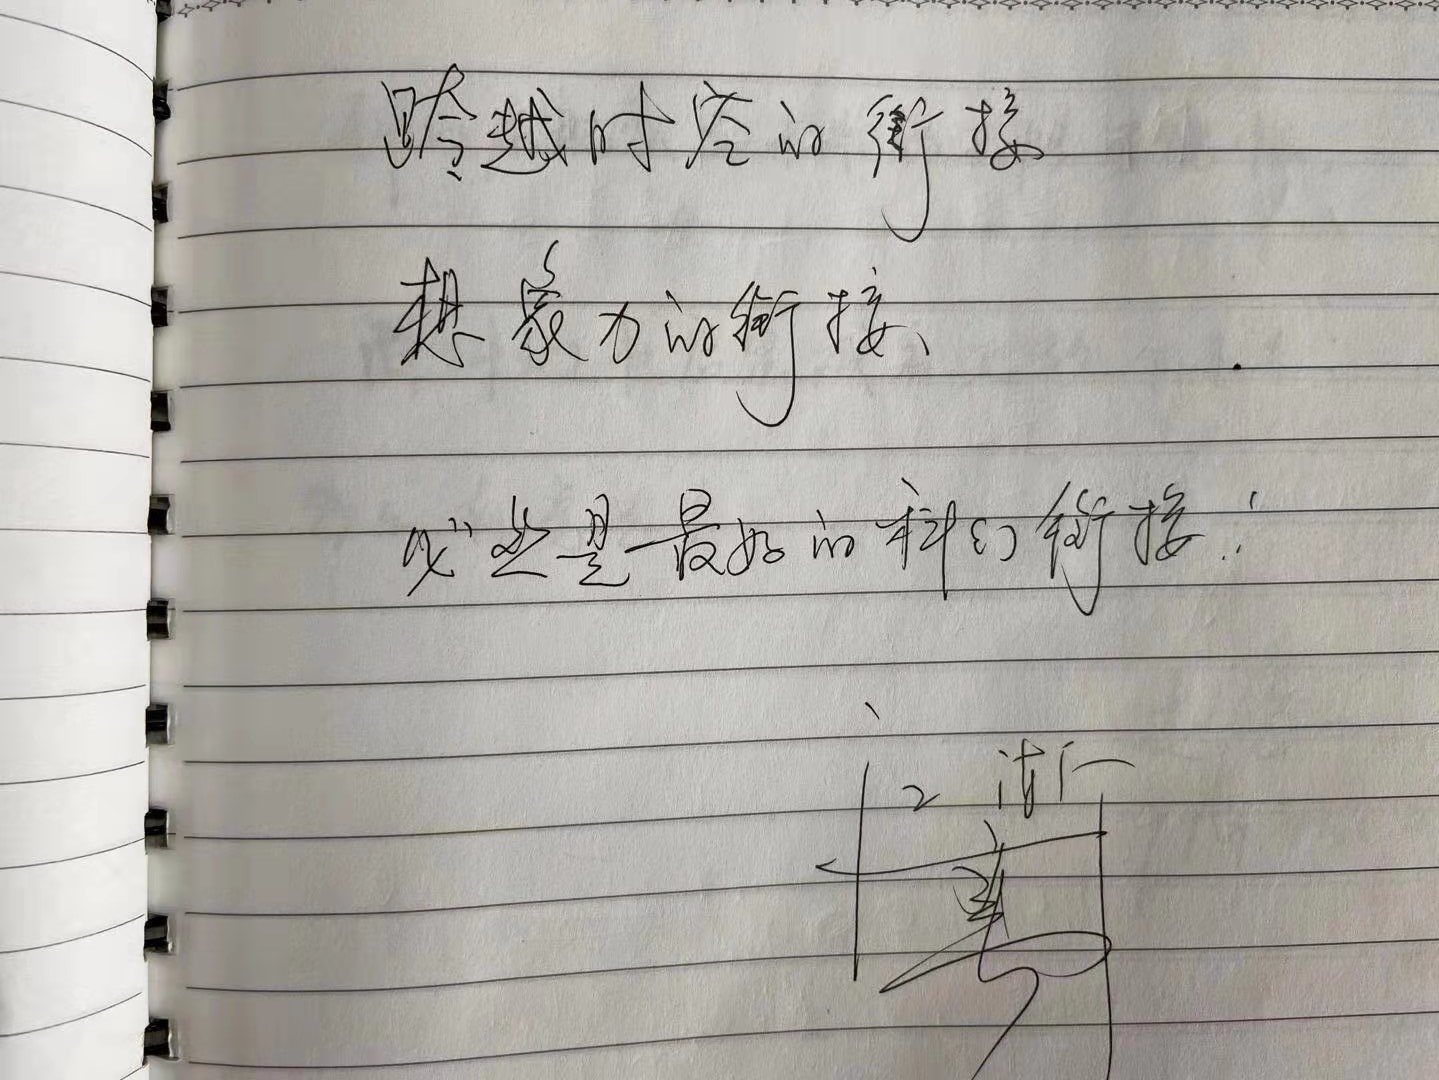 跨越时空的衔接
想象力的衔接、
是最好的科幻衔接